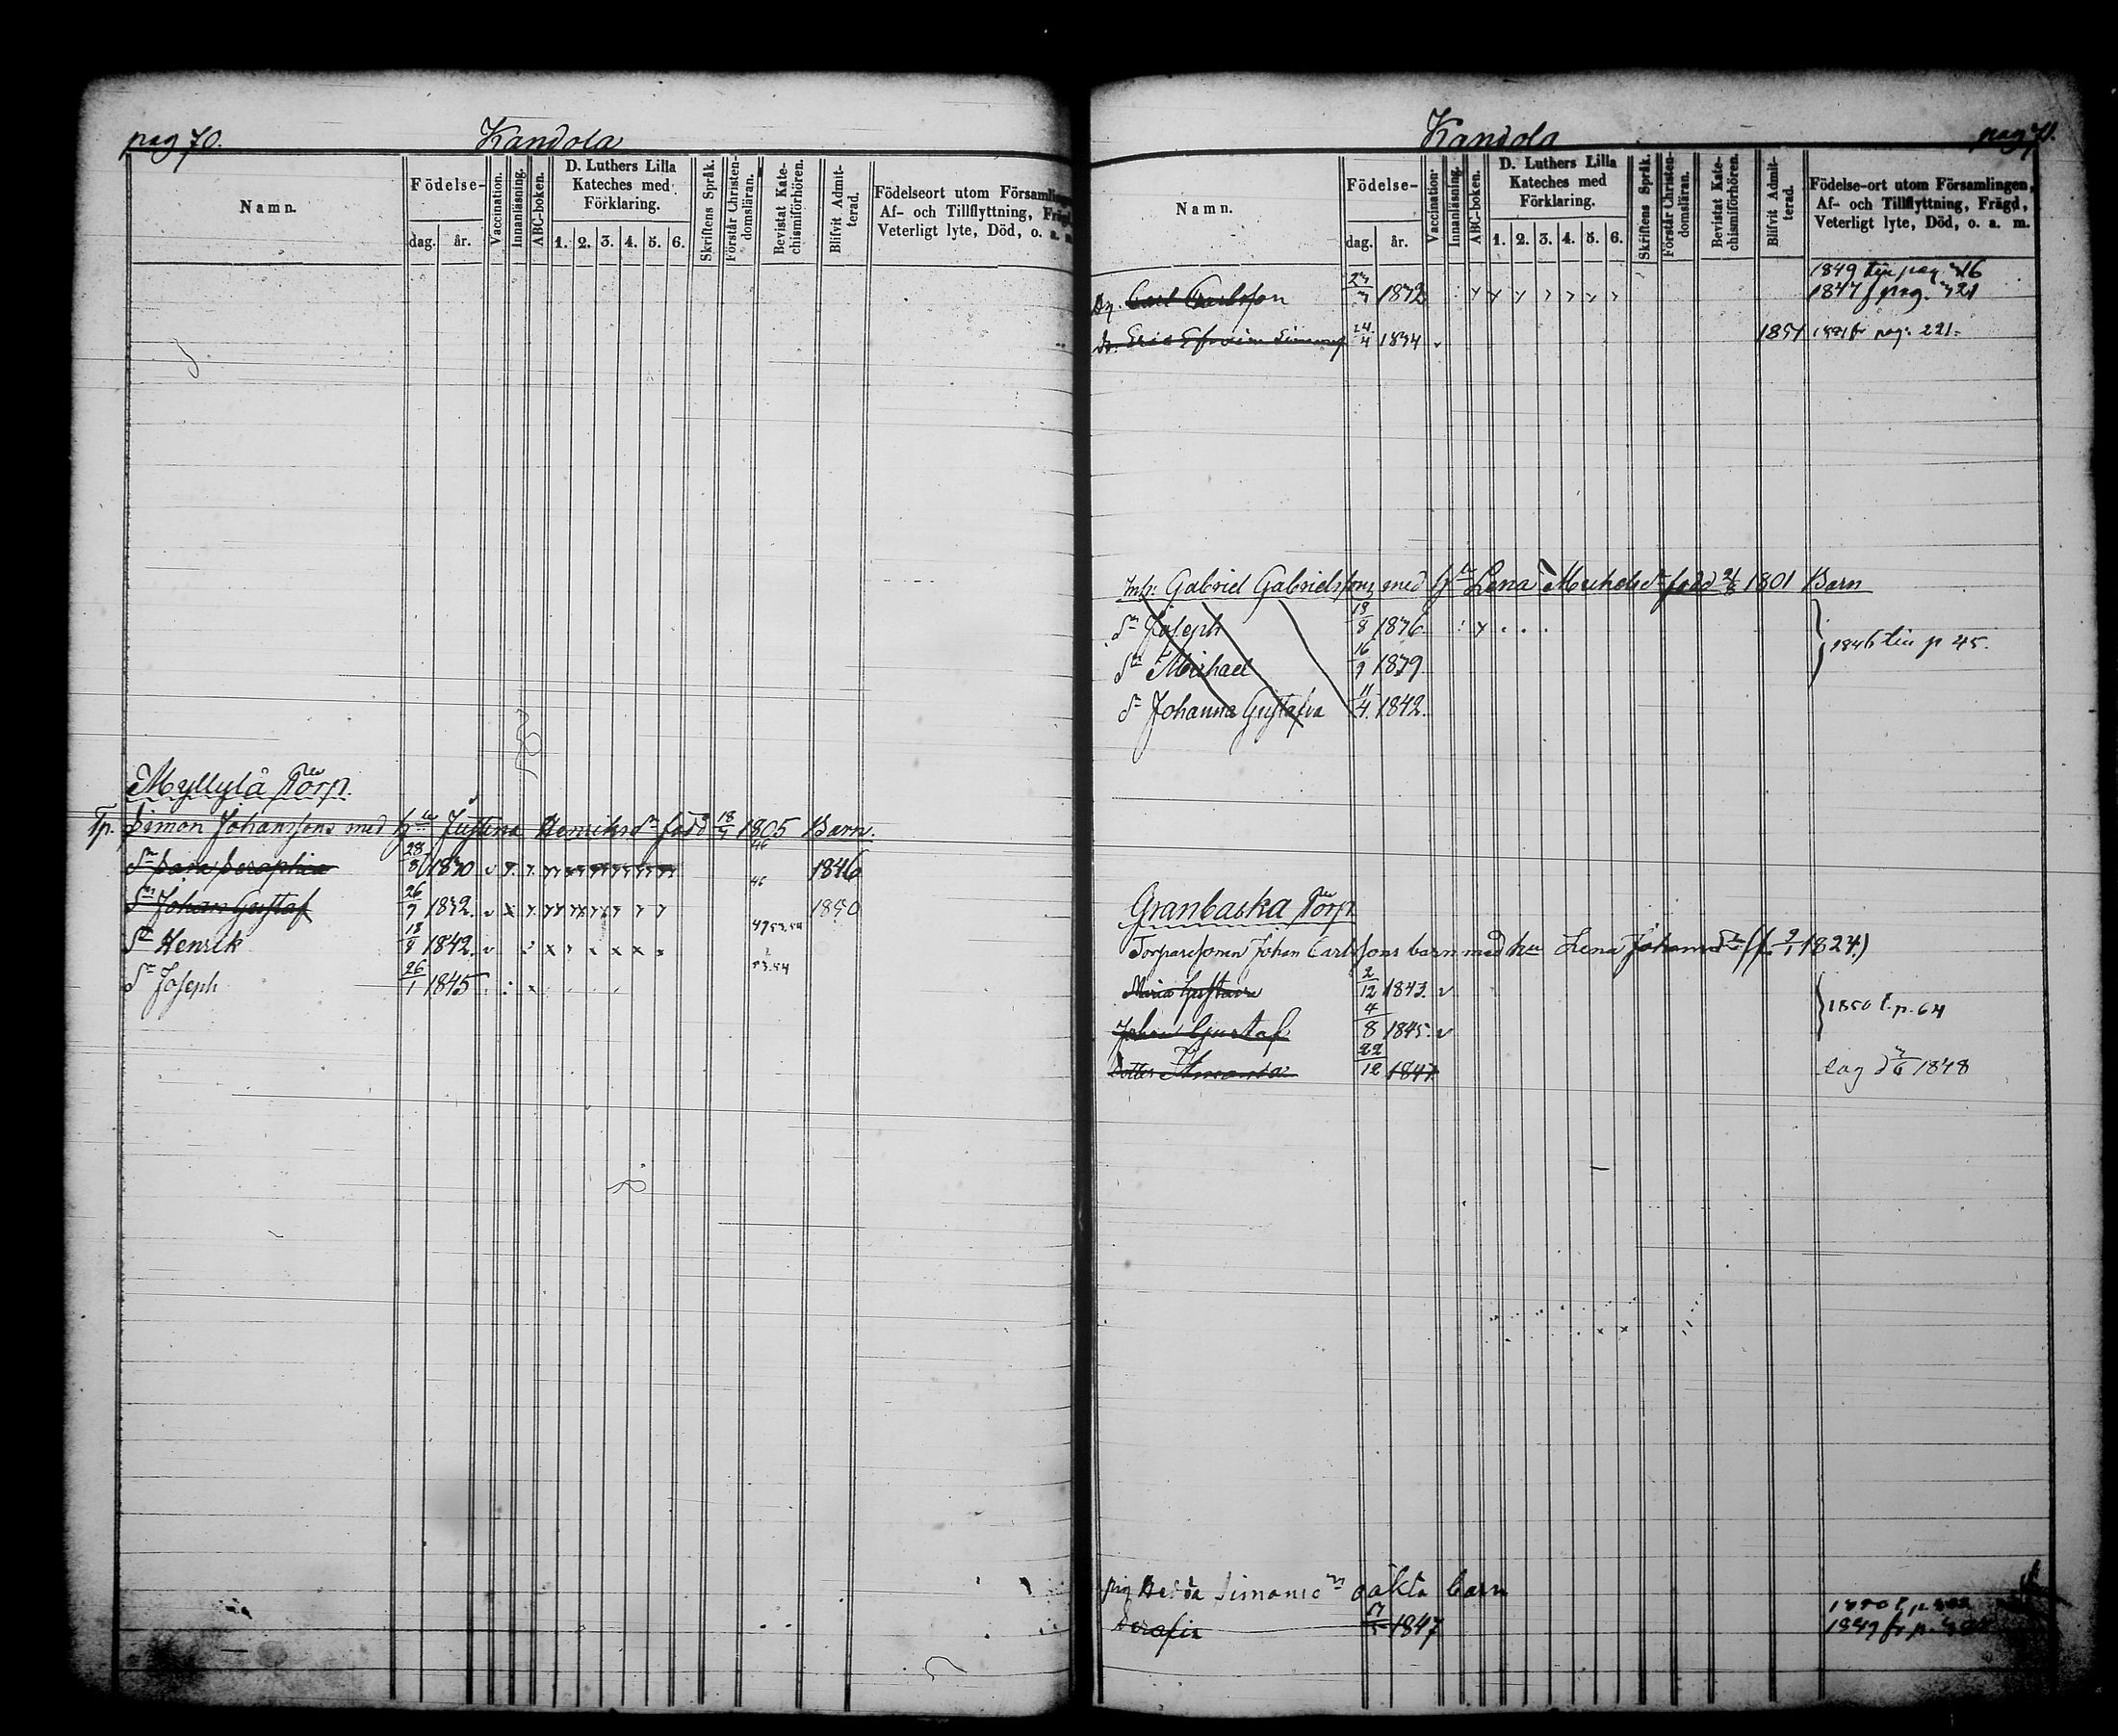 pag 70.
Kandola
Namn.
Födelse-
dag.
år.
Vaccination.
Innanläsning.
ABC-boken.
D. Luthers Lilla
Kateches med
Förklaring.
1. 2. 3. 4. 5. 6.
Skriftens Språk.
Förstår Christen-
domsläran.
Bevistat Kate-
chismiförhören.
Blifvit Admit-
terad.
Födelseort utom Församlingen
Af- och Tillflyttning, Frägd,
Veterligt lyte, Död, o. a. m.
Myllylä Torp.
Tp. Simon Johanssons med hu Justina Henriksdr född 18/7 1805 Barn.
Dr Sara Seraphia 28/8 1830 1846
Sn Johan Gustaf 26/7 1832 1850
Sn Henrik 18/8 1842
Sn Joseph 26/1 1845
Kandola
pag 71.
Namn.
Födelse-
dag.
år.
Vaccination.
Innanläsning.
ABC-boken.
D. Luthers Lilla
Kateches med
Förklaring.
1. 2. 3. 4. 5. 6.
Skriftens Språk.
Förstår Christen-
domsläran.
Bevistat Kate-
chismiförhören.
Blifvit Admit-
terad.
Födelse-ort utom Församlingen,
Af- och Tillflyttning, Frägd,
Veterligt lyte, Död, o. a. m.
1849 till pag 316
Dg. Carl Carlsson 1832 1847 f pag. 321
Dr. Eric Efraim 24/4 1834 1851 fr pag: 221.
Inh: Gabriel Gabrielssons med hu Lena Michelsdr född 1801 Barn
Sn Joseph 18/8 1836
Sn Michael 16/9 1839 1846 till p 45.
Dr Johanna Gustafva 11/4 1842.
Granbacka Torp
Torparesonen Johan Carlssons barn med hu Lena Johansdr (f. 2/1 1824.)
Maria Gustava 2/12 1843. 1850 t. p. 64
Johan Gustaf 4/8 1845.
Dotter Amanda 22/12 1847 1848
Pig Hedda Simonsdr oäkta barn
Serafia 1847